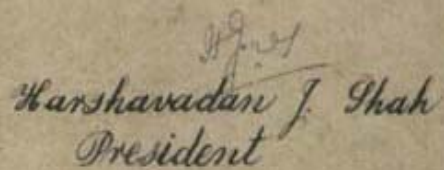 Harshavadan J. Shah
President